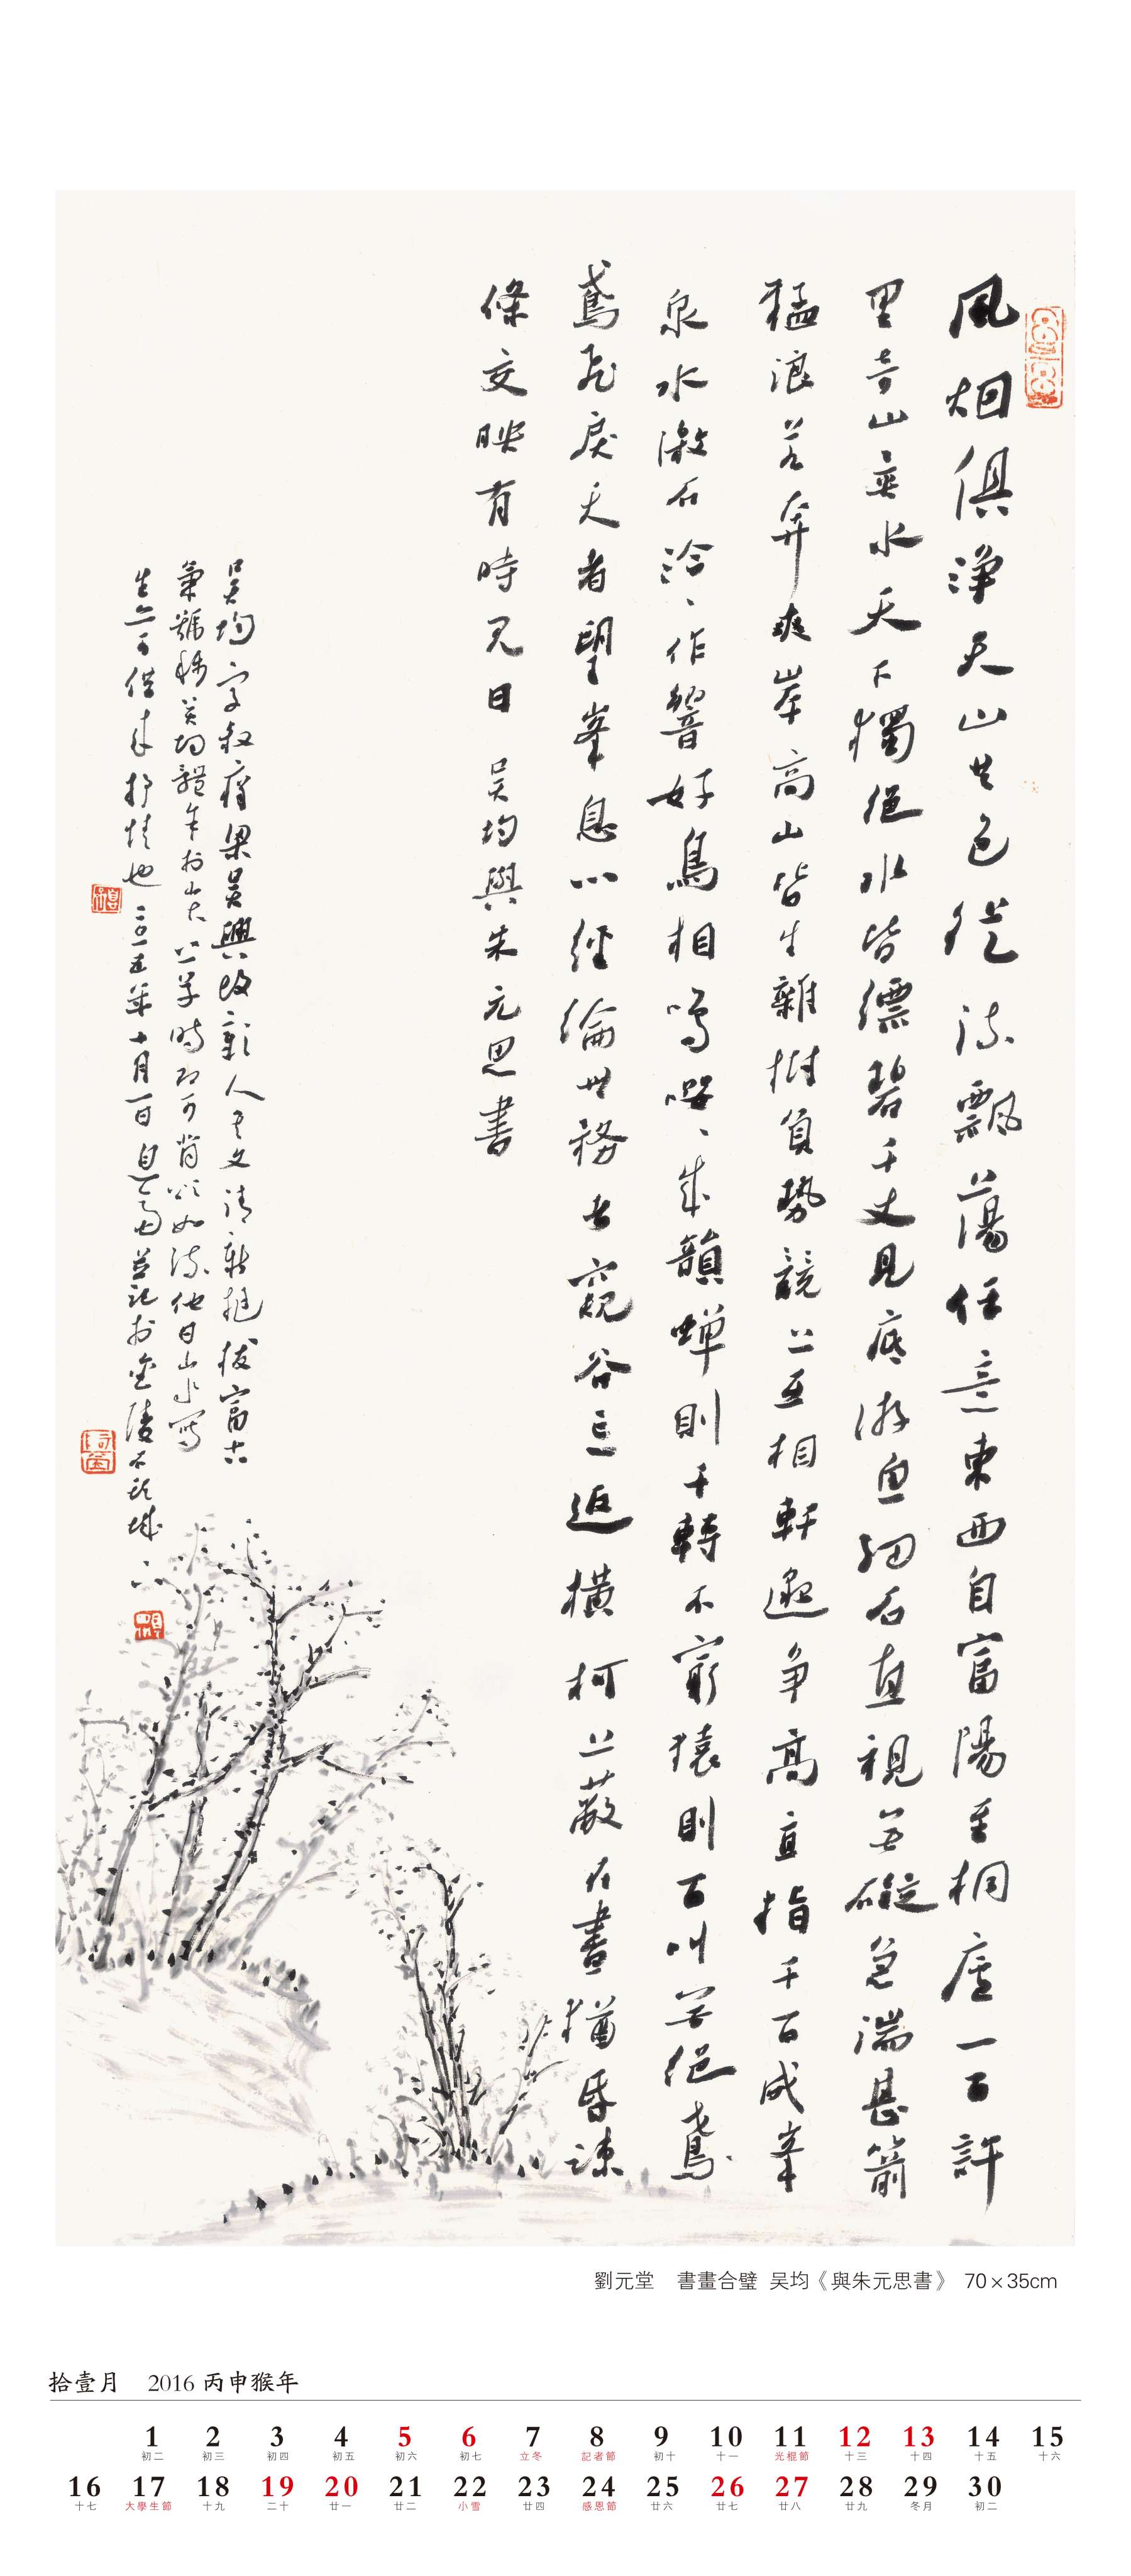 風烟俱淨天山共色從流飄蕩任意東西自富陽至桐廬一百許
里奇山異水天下獨絕水皆縹碧千丈見底游魚細石直視無礙急湍甚箭
猛浪若奔夾岸高山皆生雜樹負勢競上互相軒邈爭高直指千百成峯
泉水激石泠、作響好鳥相鳴嚶、成韻蟬則千轉不窮猿則百叫無絕鳶
鳶飛戾天者望峯息心經綸世務者窺谷忘返橫柯上蔽在晝猶昏疎
條交映有時見日 吳均與朱元思書
吳均字叔庠梁吳興故鄣人其文清新挺拔富古
氣號稱吳均體年於
生亦可借来抒情也二〇一五年十月一日
劉元堂 書畫合璧 吴均《與朱元思書》 70×35cm
拾壹月 2016 丙申猴年
1 2 3 4 5 6 7 8 9 10 11 12 13 14 15
初二 初三 初四 初五 初六 初七 立冬 記者節 初十 十一 光棍節 十三 十四 十五 十六
16 17 18 19 20 21 22 23 24 25 26 27 28 29 30
十七 大學生節 十九 二十 廿一 廿二 小雪 廿四 感恩節 廿六 廿七 廿八 廿九 冬月 初二